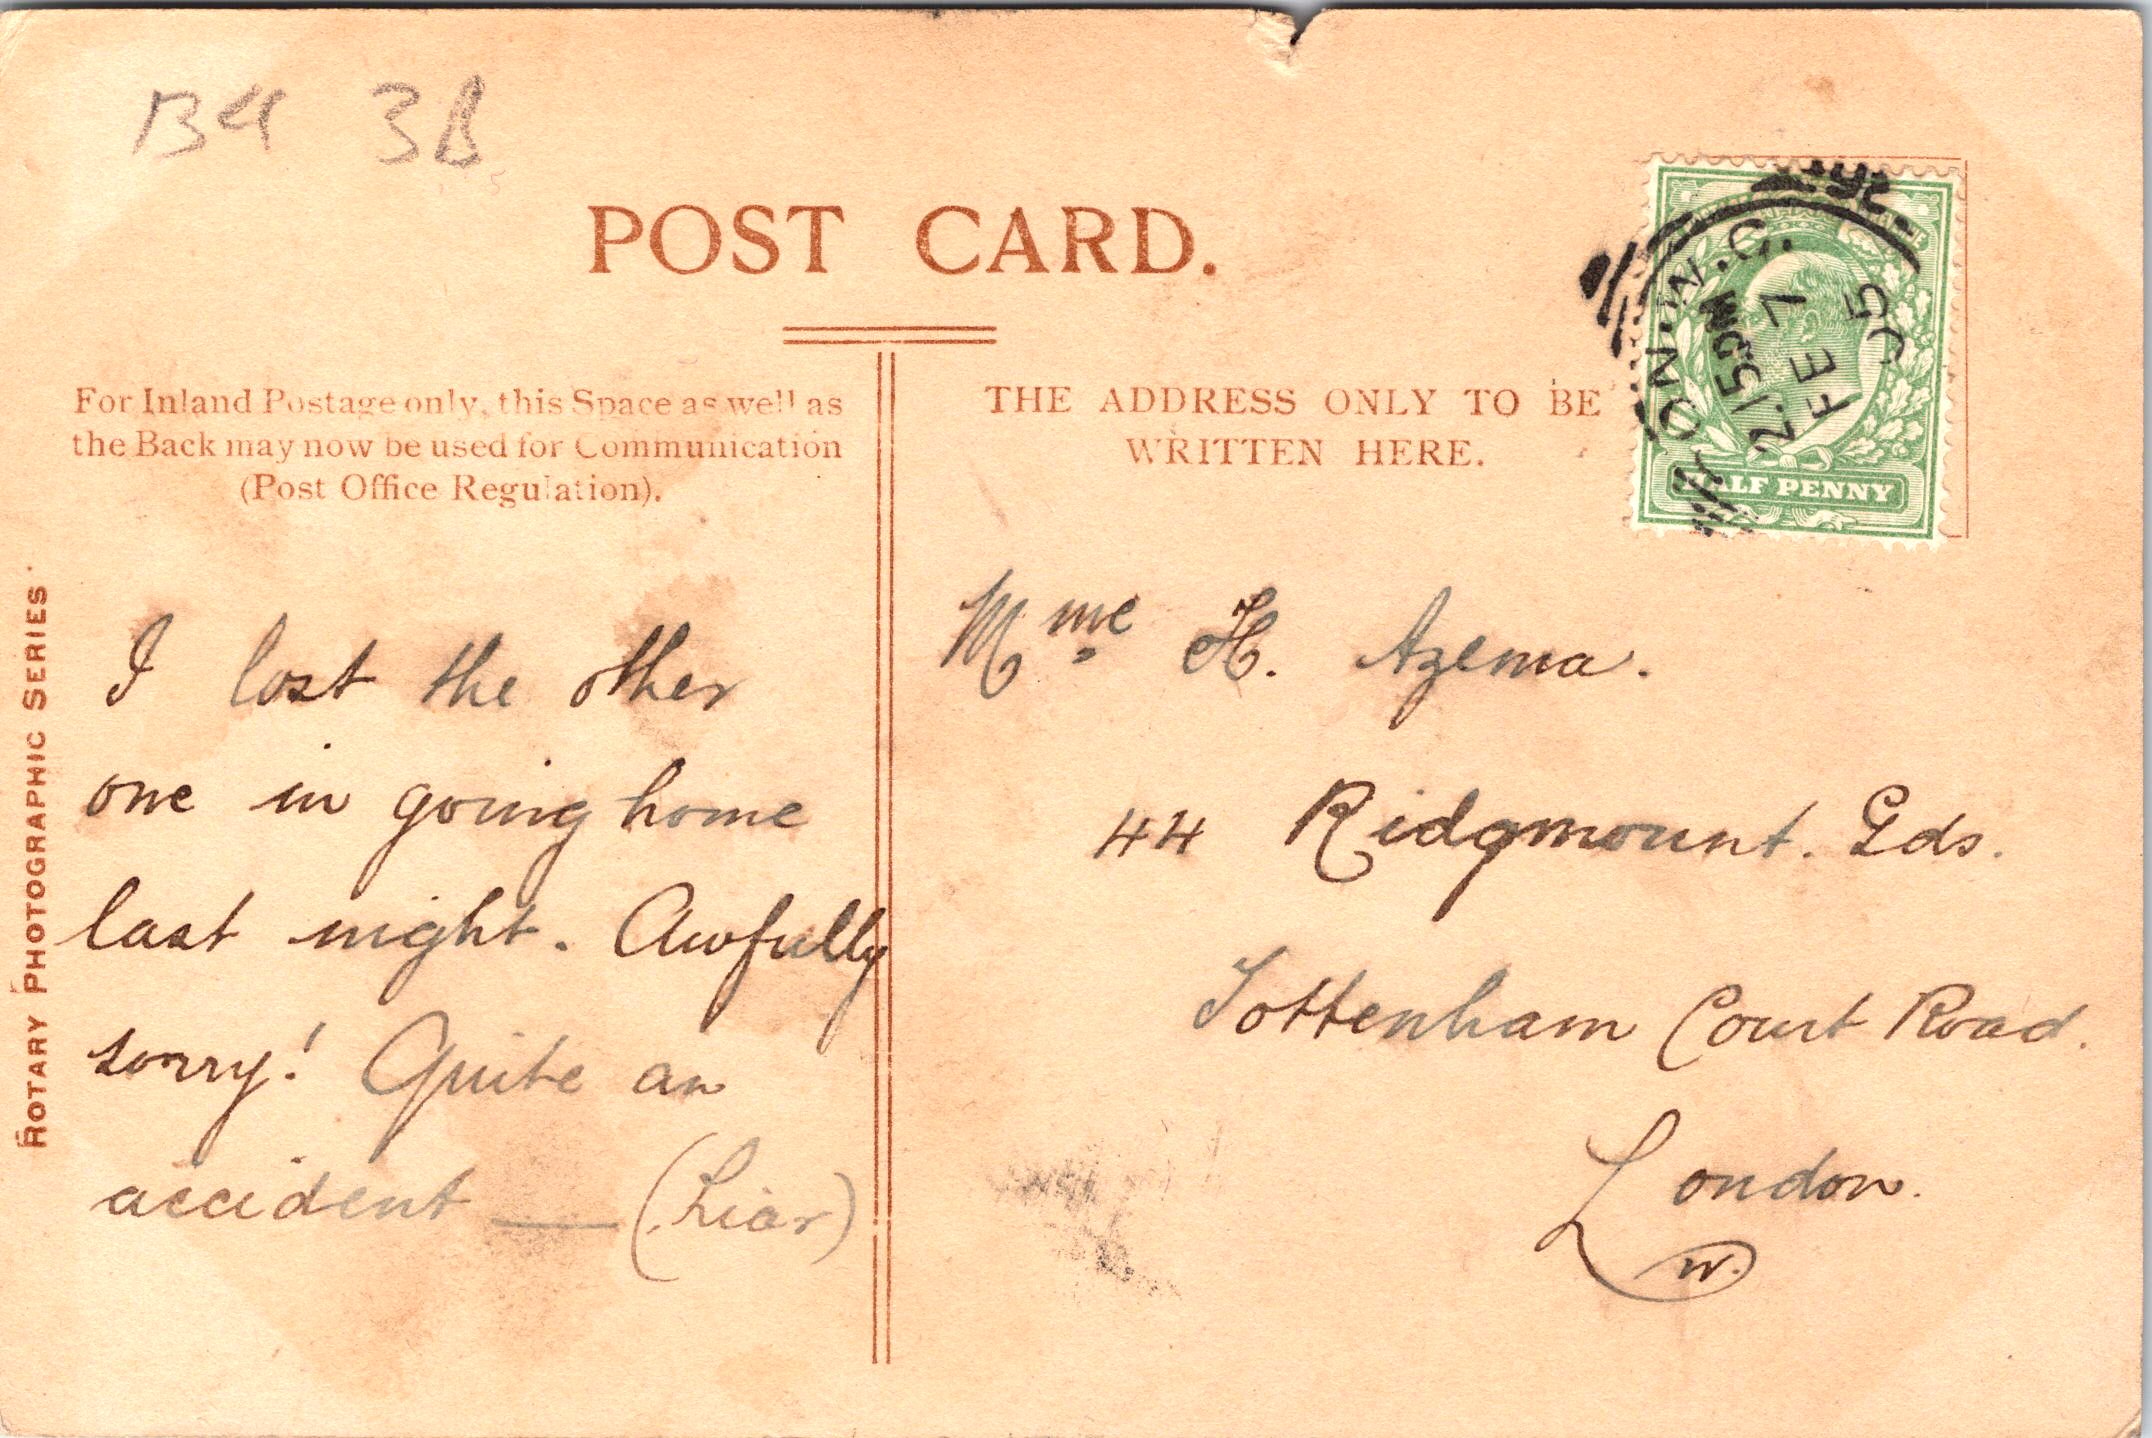 B4 3B
POST CARD.
For Inland Postage only, this Space as well as
the Back may now be used for Communication
(Post Office Regulation).
THE ADDRESS ONLY TO BE
WRITTEN HERE.
LONDON. W.C.
2.15 PM
FE 7
05
HALF PENNY
ROTARY PHOTOGRAPHIC SERIES
I lost the other
one in going home
last night. Awfully
sorry! Quite an
accident — (Liar)
Mme. H. Azema.
44 Ridgmount. Gds.
Tottenham Court Road.
London.
W.